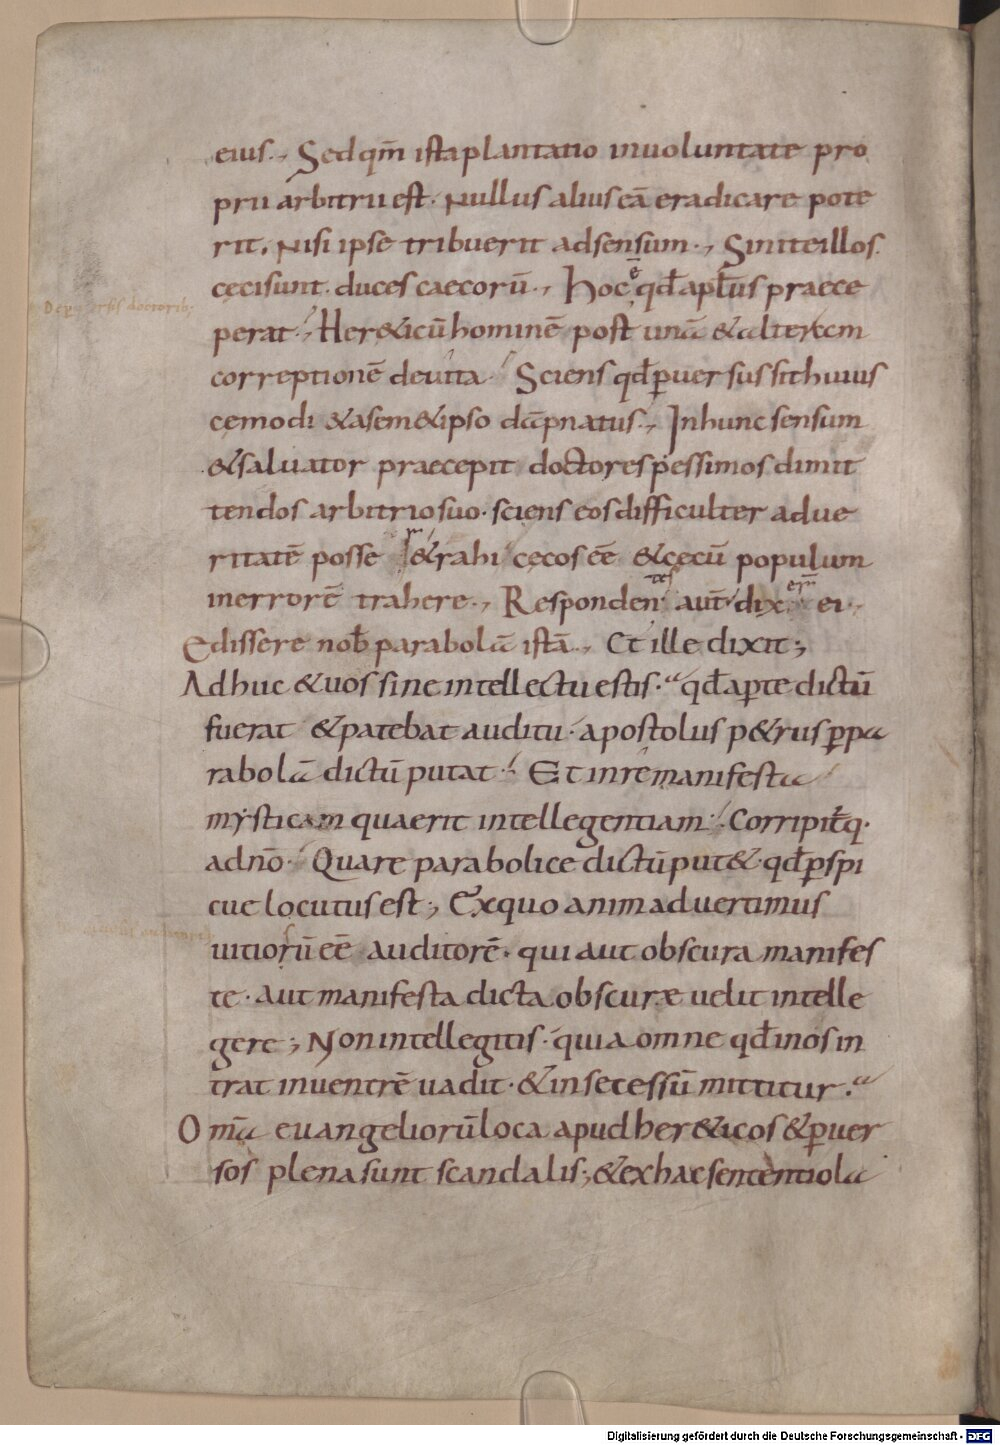 eius., Sed qm̄ ista plantatio in uoluntate pro
prii arbitrii est. Nullus alius eā eradicare pote
rit. Nisi ipse tribuerit adsensum., Sinite illos.
cęci sunt. duces caecorū., Hoc ē qđ apłus praece
perat., Her&icū hominē post unā & alteram
correptionē deuita. Sciens qđ ꝑuersus sit huius
cemodi & a sem&ipso dāpnatus., In hunc sensum
& saluator praecepit doctores pessimos dimit
tendos arbitrio suo. sciens eos difficulter ad ue
ritatē posse &rahi cęcos eē & cęcū populum
in errorē trahere., Respondentes aut̄ dixern̄ ei.
Edissere nob̄ parabolā istā., Et ille dixit;
Adhuc & uos sine intellectu estis. qđ aꝑte dictū
fuerat & patebat auditu. apostolus p&rus ꝑ pa
rabolā dictū putat. Et in re manifesta
mysticam quaerit intellegentiam. Corripit̄q.
a dn̄o. Quare parabolice dictū put& qđ ꝑspi
cue locutus est; Ex quo animaduertimus
uitiosū eē auditorē. qui aut obscura manifes
te. aut manifesta dicta obscuræ uelit intelle
gere; Non intellegitis. quia omne qđ in os in
trat in uentrē uadit. & in secessū mittitur.
Omā euangeliorū loca apud her&icos & ꝑuer
sos plena sunt scandalis; & ex hac sententiola
Digitalisierung gefördert durch die Deutsche Forschungsgemeinschaft - DFG